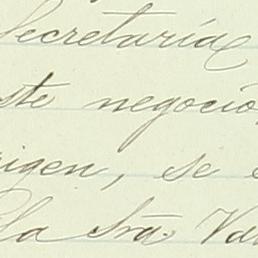 Secretaría
ste negocio
rigen, se
la Sra. Va